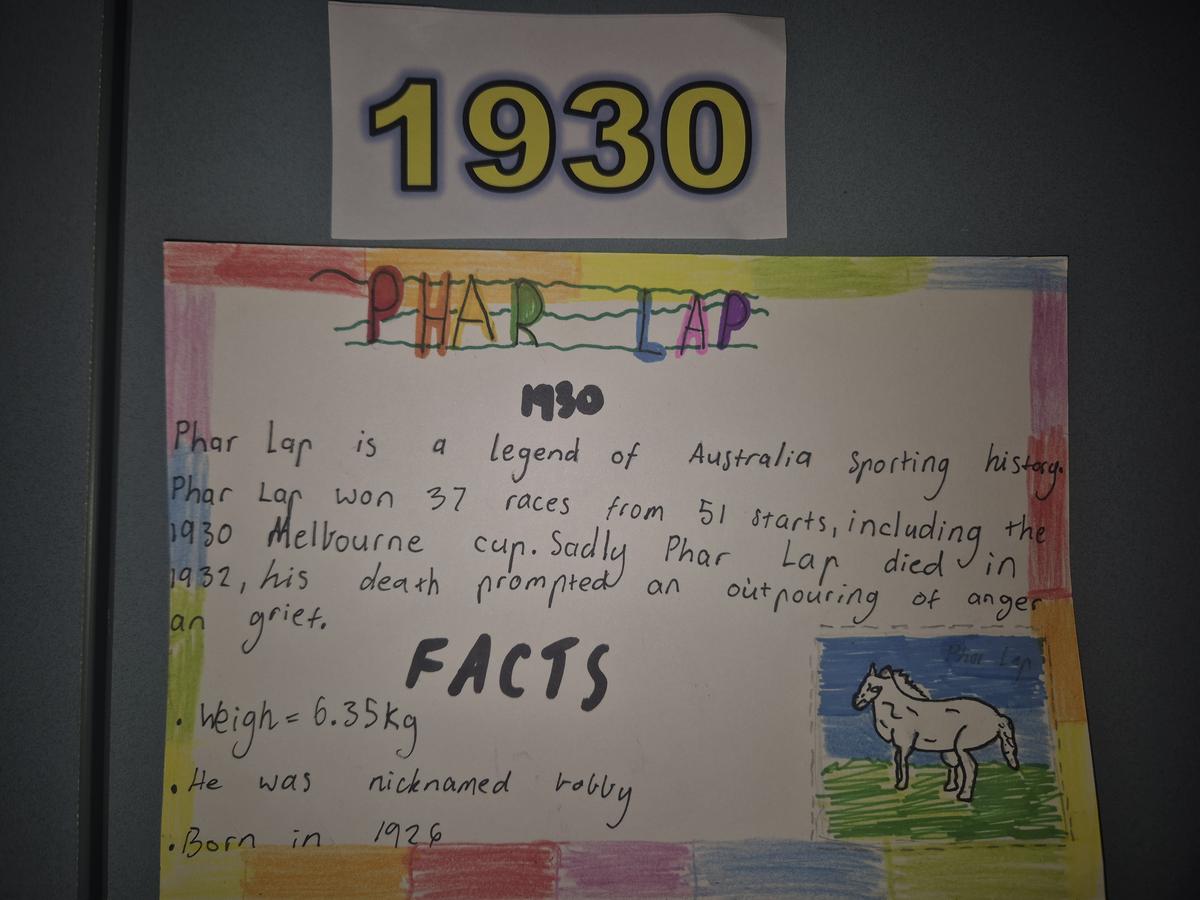 1930
PHAR LAP
1930
Phar Lap is a legend of Australia sporting history.
Phar Lap won 37 races from 51 starts, including the
1930 Melbourne cup. Sadly Phar Lap died in
1932, his death prompted an outpouring of anger
an grief.
FACTS
Phar Lap
• Weigh = 6.35kg
• He was nicknamed bobby
• Born in 1926